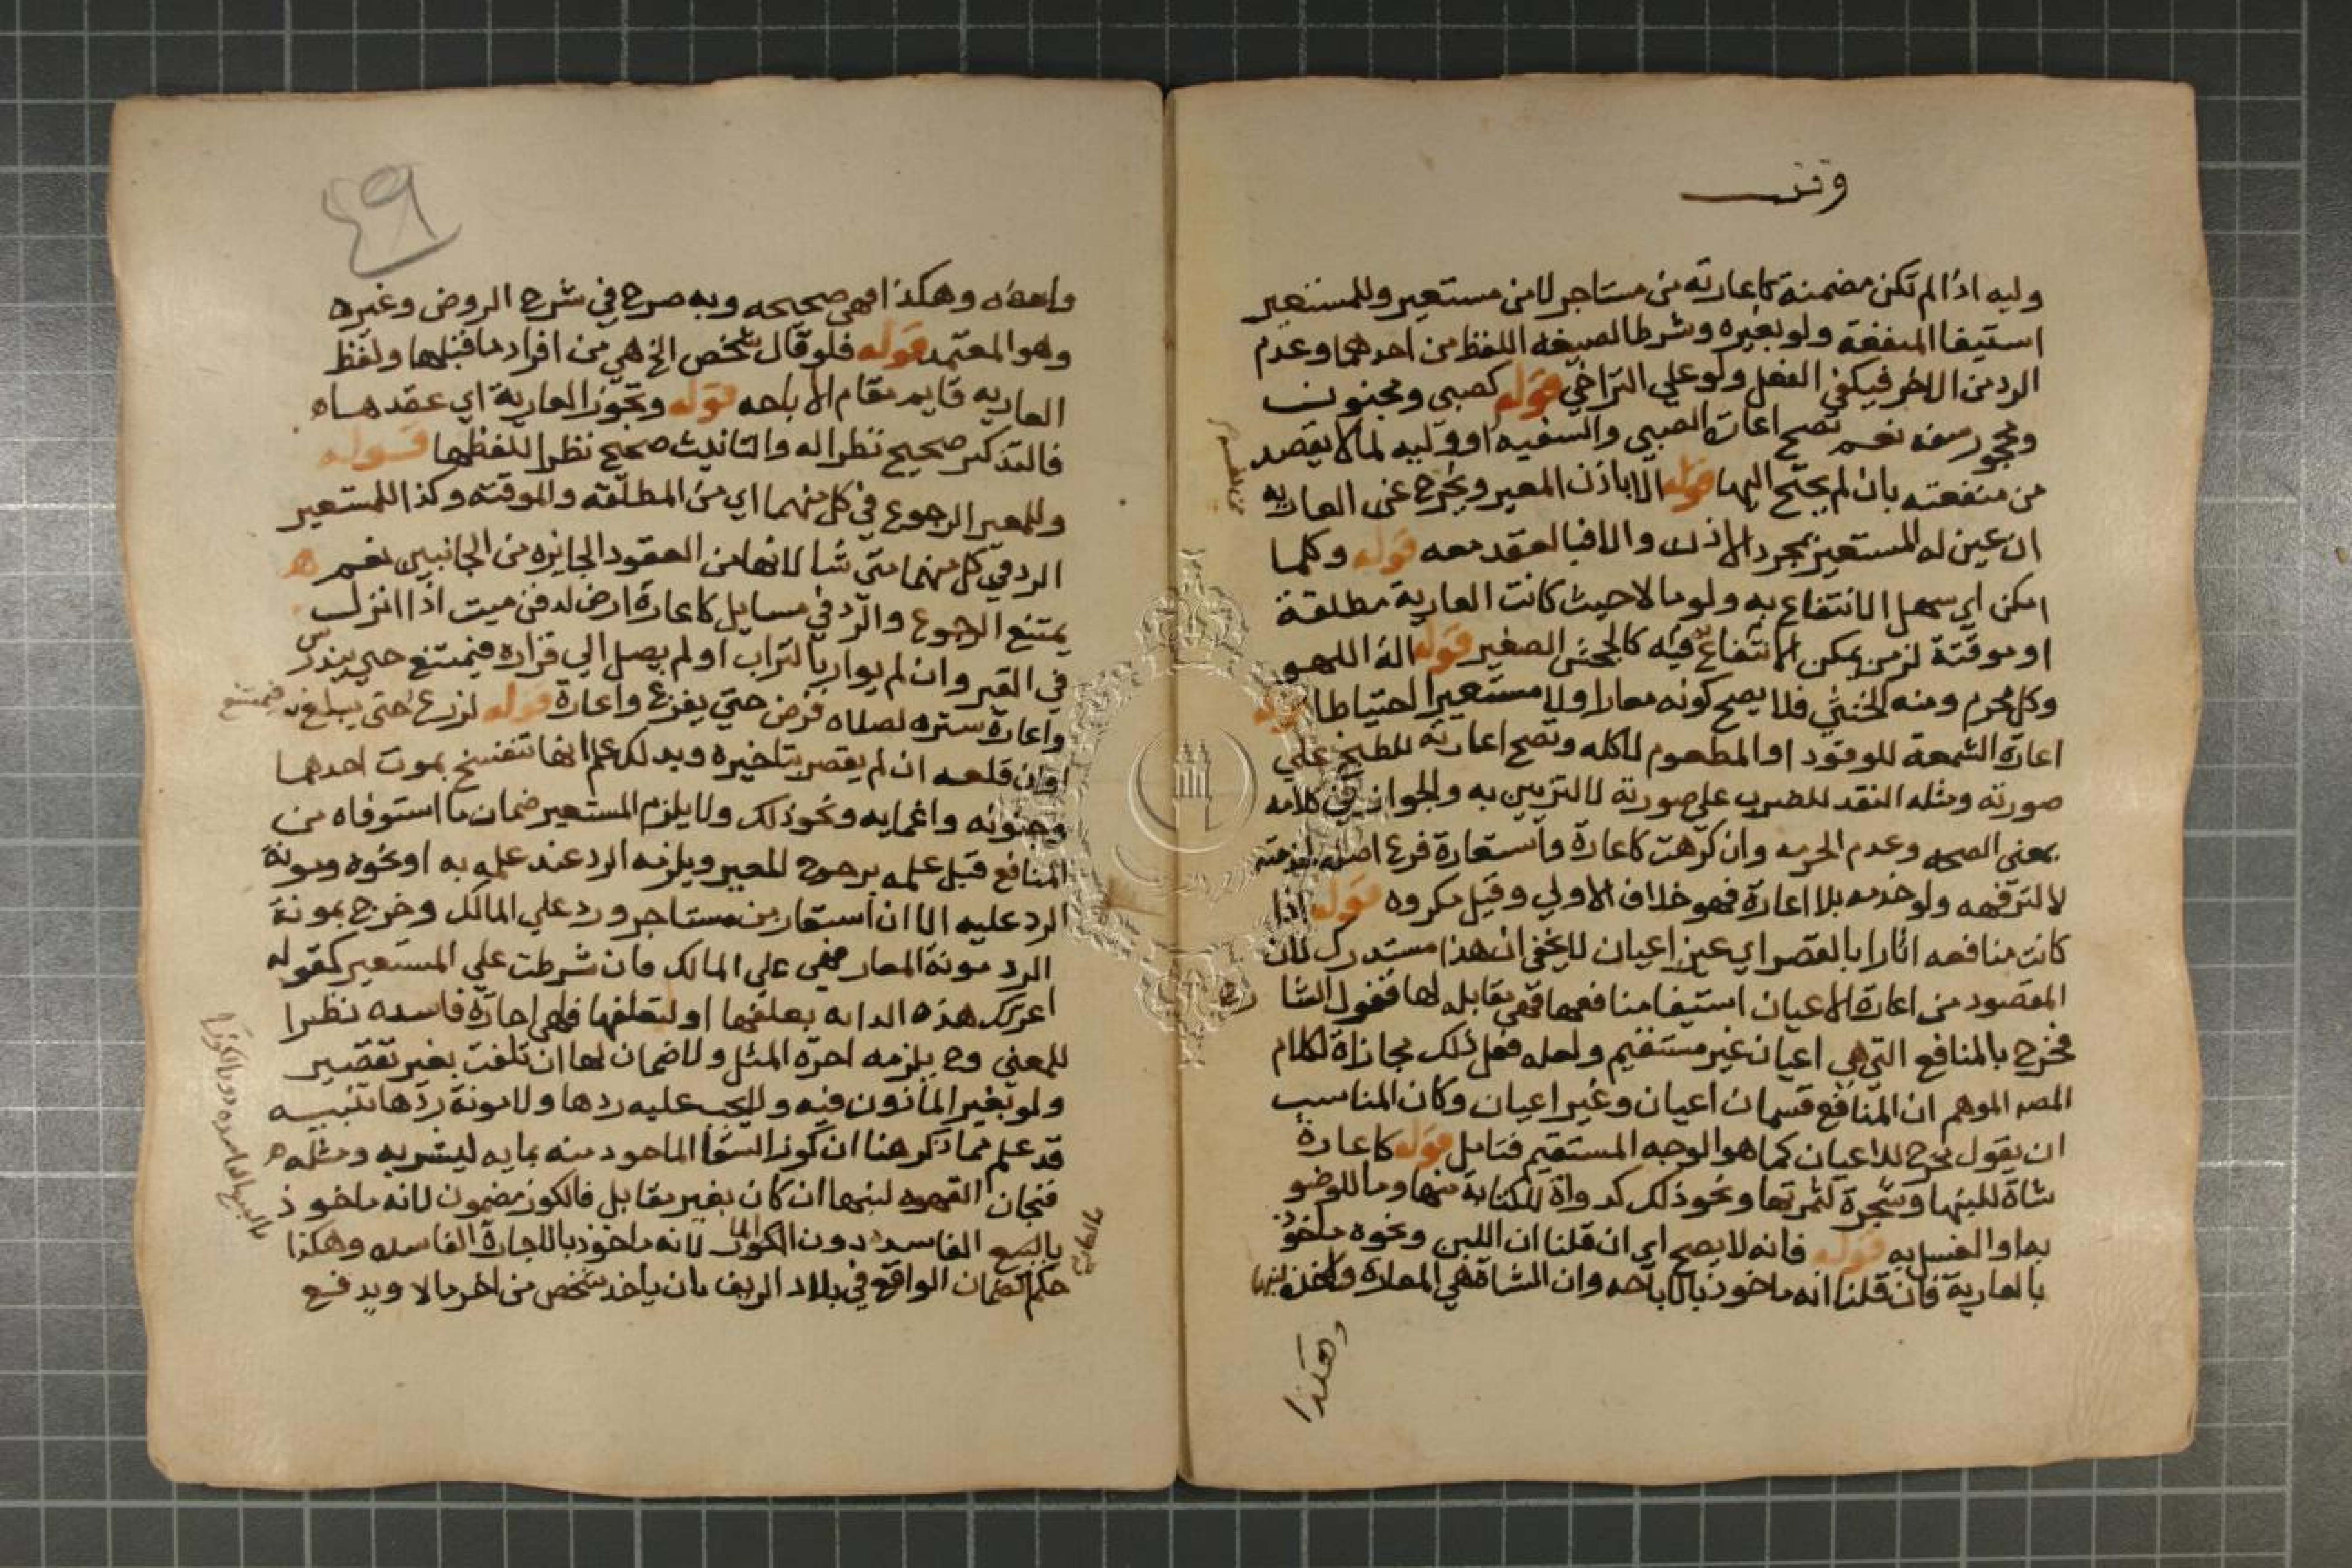 وقف
وليه اذا لم تكن مضمنة كاعارته من مستاجر لا من مستعير وللمستعير
استيفا المنفعة ولو بغيره وشرط الصيغه اللفظ من احدهما وعدم
الرد من الاخر فيكفي الفعل ولو علي التراخي قوله كصبي ومجنون
ومحجور سفه نعم تصح اعارة الصبي والسفيه او وليه لما لا يقصد
من منفعته بان لم يحتج اليها قوله الا باذن المعير ويخرج عن العاريه
ان عين له المستعير بمجرد الاذن والا فبالعقد معه قوله وكلما
امكن اي سهل الانتفاع به ولو مالا حيث كانت العارية مطلقة
او موقتة لزمن يمكن الانتفاع به فيه كالجحش الصغير قوله الة اللهو
وكل محرم ومنه الخنثي فلا يصح كونه معارا ولا مستعيرا احتياطا قوله
اعارة الشمعة للوقود او المطعوم لاكله وتصح اعارته للطبخ علي
صورته ومثله النقد للضرب علي صورته لا التزيين به والجواز في كلامه
بمعني الصحه وعدم الحرمه وان كرهت كاعارة واستعارة فرع اصله لخدمته
لا لترفهه ولو خدمه بلا اعارة فهو خلاف الاولي وقيل مكروه قوله اذا
كانت منافعه اثارا بالقصر اي غير اعيان لا يخفي ان هذا مستدرك لان
المقصود من اعارة الاعيان استيفا منافعها فهي مقابله لها فقول الشارح
مخرج بالمنافع التي هي اعيان غير مستقيم ولعله فعل ذلك مجازاة لكلام
المصـ الموهم ان المنافع قسمان اعيان وغير اعيان وكان المناسب
ان يقول مخرج للاعيان كما هو الوجه المستقيم فتامل قوله كاعارة
شاة للبنها وشجرة لثمرتها ونحو ذلك كدواة للكتابة منها وما للوضو
به او الغسل به قوله فانه لا يصح اي ان قلنا ان اللبن ونحوه ماخوذ
بالعارية فان قلنا انه ماخوذ بالاباحه وان الشاة هي المعارة لاخذ لبنها
وهكذا
٤٩
واحده وهكذا فهي صحيحه وبه صرح في شرح الروض وغيره
وهو المعتمد قوله فلو قال شخص الخ هي من افراد ما قبلها ولفظ
العاريه قايم مقام الاباحه قوله وتجوز العارية اي عقدها
فالتذكير صحيح نظرا له والتانيث صحيح نظرا للفظها قوله
وللمعير الرجوع في كل منهما اي من المطلقة والموقتة وكذا للمستعير
الرد في كل منهما متي شا لانها من العقود الجايزه من الجانبين نعم
يمتنع الرجوع والرد في مسايل كاعارة ارض لدفن ميت اذا انزل
في القبر وان لم يوار بالتراب او لم يصل الي قراره فيمتنع حتي يندرس
واعارة ستره لصلاه فرض حتي يفرغ واعارة قوله لزرع حتي يبلغ فيمتنع
اوان قلعه ان لم يقصر بتاخيره وبذلك علم انها تنفسخ بموت احدهما
وجنونه واغمايه ونحو ذلك ولا يلزم المستعير ضمان ما استوفاه من
المنافع قبل علمه برجوع المعير ويلزمه الرد عند علمه به او نحوه ومونة
الرد عليه الا ان استعار من مستاجر ورد علي المالك وخرج بمونة
الرد مونة المعار فهي علي المالك فان شرطت علي المستعير كقوله
اعرتك هذه الدابه بعلفها او لتعلفها فهي اجارة فاسده نظرا
للمعني وح يلزمه اجرة المثل ولا ضمان لها ان تلفت بغير تقصير
ولو بغير الماذون فيه ولا يجب عليه ردها ولا مونة ردها تنبيه
قد علم مما ذكر هنا ان كوز السقا الماخوذ منه بمايه ليشربه ومثله
فنجان القهوه لبنها ان كان بغير مقابل فالكوز مضمون لانه ماخوذ
بالبيع الفاسد دون الكوز لانه ماخوذ بالاجارة الفاسده وهكذا
حكم الضمان الواقع في بلاد الريف بان ياخذ شخص من اخر مالا ويدفع
بالعارية